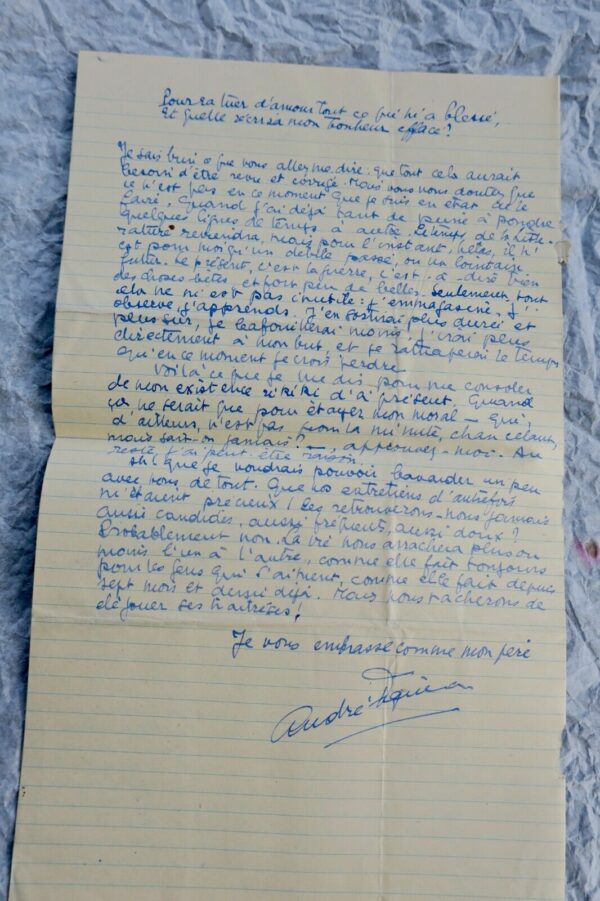 Pour       d'amour tout ce qui m'a blessé,
Et qu'elle       mon bonheur effacé?
Je sais bien ce que vous allez me dire: que tout cela aurait
besoin d'être revu et corrigé. Mais vous vous doutez que
ce n'est pas en ce moment que je suis en état de le
faire, quand j'ai déjà tant de peine à pondre
quelques lignes de temps à autre. Le temps de la litté-
rature reviendra, mais pour l'instant, hélas, il n'
est pour moi qu'un       passé, ou un lointain
futur. Le présent, c'est la guerre, c'est-à-dire bien
des choses bêtes et fort peu de belles. Seulement, tout
cela ne m'est pas inutile: j'emmagasine, j'
observe, j'apprends. J'en sortirai plus durci et
plus sûr, je bafouillerai moins, j'irai plus
directement à mon but, et je rattraperai le temps
qu'en ce moment je crois perdre.
Voilà ce que je me dis pour me consoler
de mon existence rikiki d'à présent. Quand
ça ne serait que pour étayer mon moral — qui,
d'ailleurs, n'est pas pour la minute, chancelant,
mais sait-on jamais? —, approuvez-moi. Au
reste j'ai peut-être raison.
Ah! que je voudrais pouvoir bavarder un peu
avec vous de tout. Que nos entretiens d'autrefois
m'étaient précieux! Les retrouverons-nous jamais
aussi candides, aussi fréquents, aussi doux?
Probablement non. La vie nous arrachera plus ou
moins l'un à l'autre, comme elle fait toujours
pour les gens qui s'aiment, comme elle fait depuis
sept mois et demi déjà. Mais nous tâcherons de
déjouer ses traîtrises!
Je vous embrasse comme mon père
André